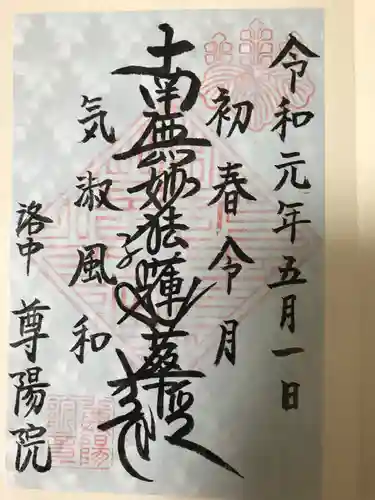 令和元年五月一日
初春令月
南無妙法蓮華経
気淑風和
洛中 尊陽院